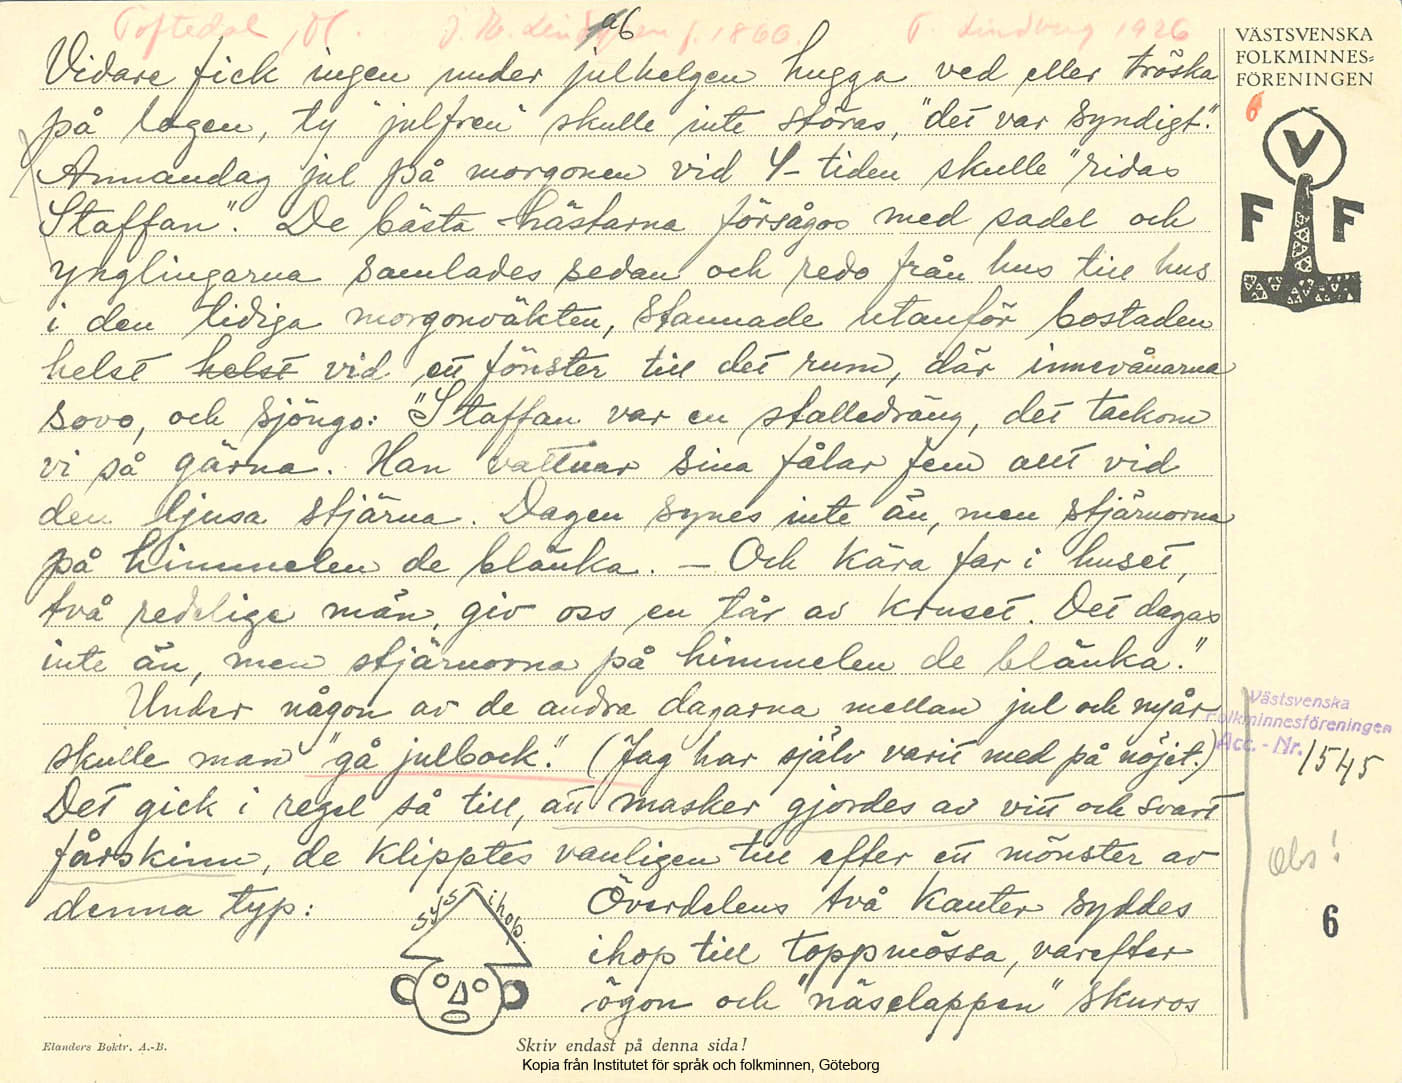 Toftedal, Dl. J. A. Lindgren f. 1866. F. Lindberg 1926
a6
VÄSTSVENSKA
FOLKMINNES-
FÖRENINGEN
6
V
F F
Vidare fick ingen under julhelgen hugga ved eller tröska
på logen, ty "julfren" skulle inte störas, "det var syndigt".
Annandag jul på morgonen vid 4-tiden skulle "ridas
Staffan". De bästa hästarna försågos med sadel och
ynglingarna samlades sedan och redo från hus till hus
i den tidiga morgonväkten, stannade utanför bostaden
helst helst vid ett fönster till det rum, där innevånarna
sovo, och sjöngo: "Staffan var en stalledräng, det tackom
vi så gärna. Han vattnar sina fålar fem allt vid
den ljusa stjärna. Dagen synes inte än, men stjärnorna
på himmelen de blänka. – Och kära far i huset,
två redelige män, giv oss en tår av kruset. Det dagas
inte än, men stjärnorna på himmelen de blänka."
Under någon av de andra dagarna mellan jul och nyår
skulle man "gå julbock". (Jag har själv varit med på nöjet.)
Det gick i regel så till, att masker gjordes av vitt och svart
fårskinn, de klipptes vanligen till efter ett mönster av
denna typ:
sys ihop.
Överdelens två kanter syddes
ihop till toppmössa, varefter
ögon och "näselappen" skuros
Västsvenska
Folkminnesföreningen
Acc.-Nr. 1545
Obs!
6
Elanders Boktr. A.-B.
Skriv endast på denna sida!
Kopia från Institutet för språk och folkminnen, Göteborg